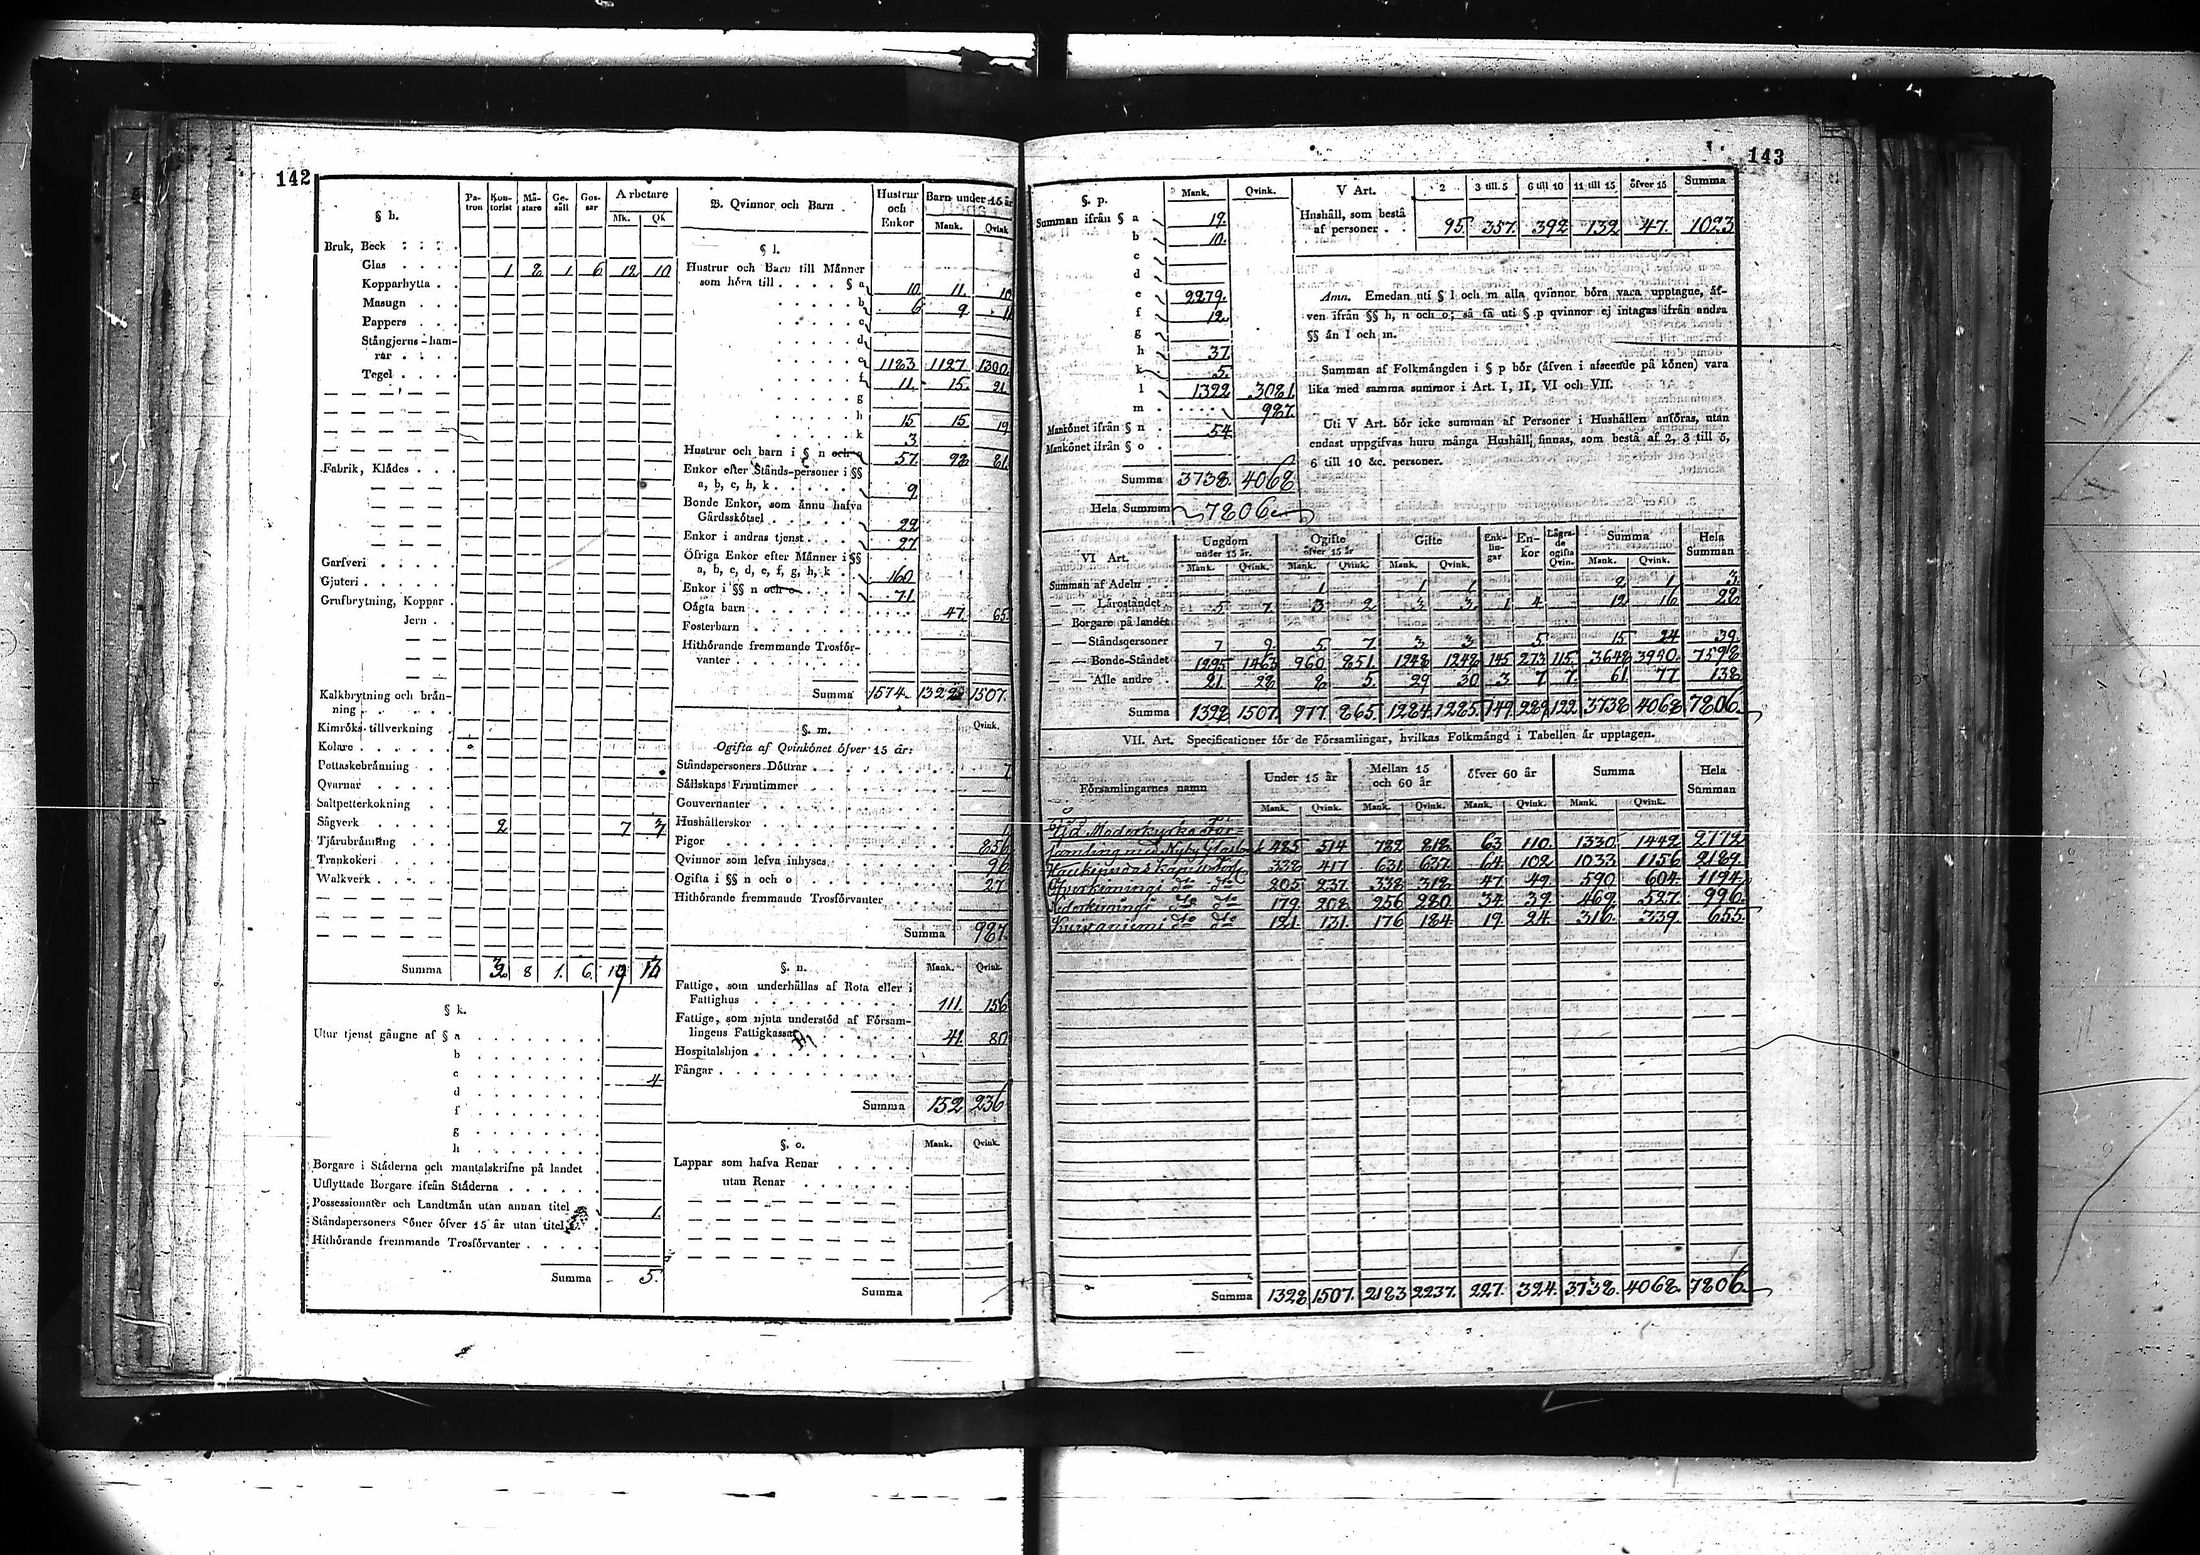 142
§ h. Pa- tron Kon- torist Mä- stare Ge- säll Gos- sar Arbetare Mk. Qk
Bruk, Beck
Glas 1 8 1 6 12 10
Kopparhytta
Masugn
Pappers
Stångjerns-ham-
rar
Tegel
Fabrik, Klädes
Garfveri
Gjuteri
Grufbrytning, Koppar
Jern
Kalkbrytning och brän-
ning
Kimröks-tillverkning
Kolare
Pottaskebränning
Qvarnar
Saltpetterkokning
Sågverk 2 7
Tjärubränning
Trankokeri
Walkverk
Summa 8 1. 6. 19
§ k.
Utur tjenst gångne af § a
b
c 4
d
f
g
h
Borgare i Städerna och mantalskrifne på landet
Utflyttade Borgare ifrån Städerna
Possessionater och Landtmän utan annan titel 1.
Ståndspersoners Söner öfver 15 år utan titel
Hithörande fremmande Trosförvanter
Summa 5.
B. Qvinnor och Barn Hustrur och Enkor Barn under 15 år Mank. Qvink
§ l.
Hustrur och Barn till Männer
som höra till § a 10 11. 10
b 6 9 11
c
d
e 1183 1127 1300
f 11 15. 21
g
h 15 15 19
k 3
Hustrur och barn i § n och o 57. 98 81.
Enkor efter Stånds-personer i §§
a, b, c, h, k 9
Bonde Enkor, som ännu hafva
Gårdsskötsel 22
Enkor i andras tjenst 27
Öfriga Enkor efter Männer i §§
a, b, c, d, e, f, g, h, k 160
Enkor i §§ n och o 71
Oägta barn 47. 65
Fosterbarn
Hithörande fremmande Trosför-
vanter
Summa 1574. 1328 1507.
§. m. Qvink.
Ogifta af Qvinkönet öfver 15 år:
Ståndspersoners Döttrar 7
Sällskaps Fruntimmer
Gouvernanter
Hushållerskor 1
Pigor 856
Qvinnor som lefva inhyses 96
Ogifta i §§ n och o 27
Hithörande fremmande Trosförvanter
Summa 987.
§. n. Mank. Qvink.
Fattige, som underhållas af Rota eller i
Fattighus 111. 156
Fattige, som njuta understöd af Försam-
lingens Fattigkassa 41. 80
Hospitalshjon
Fångar
Summa 152 236
§. o. Mank. Qvink.
Lappar som hafva Renar
utan Renar
Summa
143
§. p. Mank. Qvink.
Summan ifrån § a 19.
b 10.
c
d
e 2279.
f 12.
g
h 37
k 5.
l 1322 3081.
m 987.
Mankönet ifrån § n 54
Mankönet ifrån § o
Summa 3738. 4068
Hela Summan 7806
V Art. 2 3 till 5 6 till 10 11 till 15 öfver 15 Summa
Hushåll, som bestå
af personer 95. 357. 392 132 47. 1023
Anm. Emedan uti § l och m alla qvinnor böra vara upptagne, äf-
ven ifrån §§ h, n och o; så få uti § p qvinnor ej intagas ifrån andra
§§ än l och m.
Summan af Folkmängden i § p bör (äfven i afseende på könen) vara
lika med samma summor i Art. I, II, VI och VII.
Uti V Art. bör icke summan af Personer i Hushållen anföras, utan
endast uppgifvas huru många Hushåll finnas, som bestå af 2, 3 till 5,
6 till 10 &c. personer.
VI Art. Ungdom under 15 år. Ogifte öfver 15 år Gifte Enk- lin- gar En- kor Lägra- de ogifta Qvin- Summa Hela Summan
Mank. Qvink. Mank. Qvink. Mank. Qvink. Mank. Qvink.
Summan af Adeln 1 1 1 2 1 3.
— — Läroståndet 5 7 3 2 3 3 1 4 12 16 28
— Borgare på landet
— Ståndspersoner 7 9. 5. 7 3 3 5. 15 24 39.
— — Bonde-Ståndet 1295 1463 960 851. 1248 1248 145 273 115. 3648 3950. 7598
— — Alle andre 21. 28 8 5. 29 30 3 7 7. 61. 77 138
Summa 1328 1507. 977. 865. 1284. 1285. 149. 289. 122. 3738 4068 7806.
VII. Art. Specificationer för de Församlingar, hvilkas Folkmängd i Tabellen är upptagen.
Församlingarnes namn Under 15 år Mellan 15 och 60 år öfver 60 år Summa Hela Summan
Mank. Qvink. Mank. Qvink. Mank. Qvink. Mank. Qvink.
Ijo Moderkyrko För=
samling med Nyby Glasbr. 485 514 782 818 63 110. 1330. 1442 2772
Haukipudas Kapells Förs. 338 417 631. 637. 64. 102 1033 1156 2189.
Öfverkimingi do do 205 237. 338 318 47. 49. 590 604. 1194
Nederkimingi do do 179. 208 256 280 34 39. 469. 527. 996.
Kuivaniemi do do 121. 131. 176 184 19. 24. 316. 339. 655
Summa 1328 1507. 2183 2237. 227. 324. 3738. 4068. 7806.